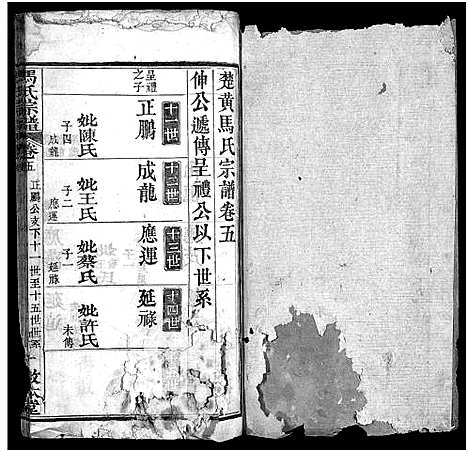 楚黃馬氏宗譜卷五
伸公遞傳呈禮公以下世系
十一世
呈禮之子
正鵬
妣陳氏
子四
成龍
十二世
成龍
妣王氏
子二
應運
十三世
應運
妣蔡氏
子一
延祿
十四世
延祿
妣許氏
未傳
馬氏宗譜
卷五
正鵬公支下十一世至十五世世系
一
敦本堂